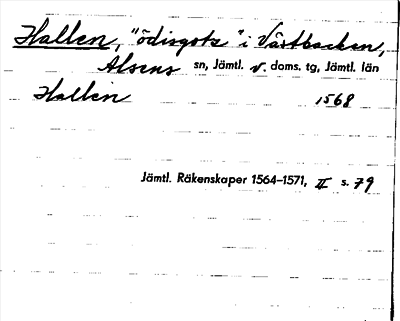 Hallen, "ödisgots" i Västbacken,
Alsens sn, Jämtl. v. doms. tg, Jämtl. län
Hallin 1568
Jämtl. Räkenskaper 1564–1571, II s. 79